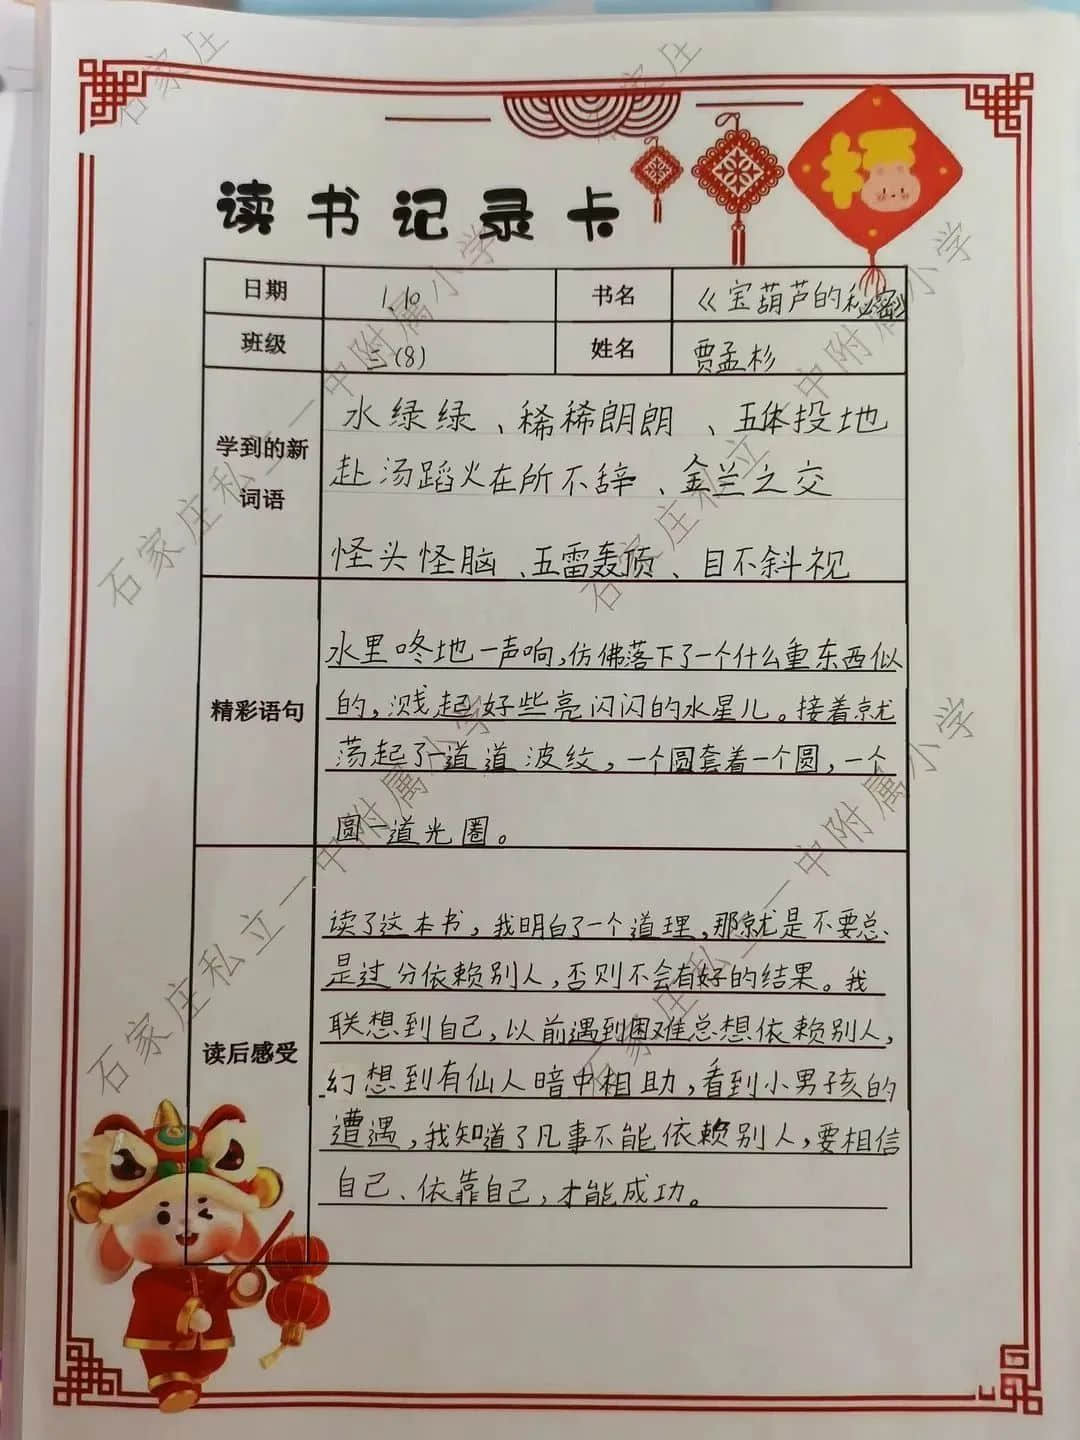 读书记录卡
日期 1.10 书名 《宝葫芦的秘密》
班级 三(8) 姓名 贾孟杉
学到的新词语
水绿绿、稀稀朗朗、五体投地
赴汤蹈火在所不辞、金兰之交
怪头怪脑、五雷轰顶、目不斜视
精彩语句
水里咚地一声响,仿佛落下了一个什么重东西似
的,溅起好些亮闪闪的水星儿。接着就
荡起了一道道波纹,一个圆套着一个圆,一个
圆一道光圈。
读后感受
读了这本书,我明白了一个道理,那就是不要总
是过分依赖别人,否则不会有好的结果。我
联想到自己,以前遇到困难总想依赖别人,
幻想到有仙人暗中相助,看到小男孩的
遭遇,我知道了凡事不能依赖别人,要相信
自己、依靠自己,才能成功。
石家庄私立一中附属小学
石家庄私立一中附属小学
石家庄私立一中附属小学
石家庄私立一中附属小学
石家庄
石家庄